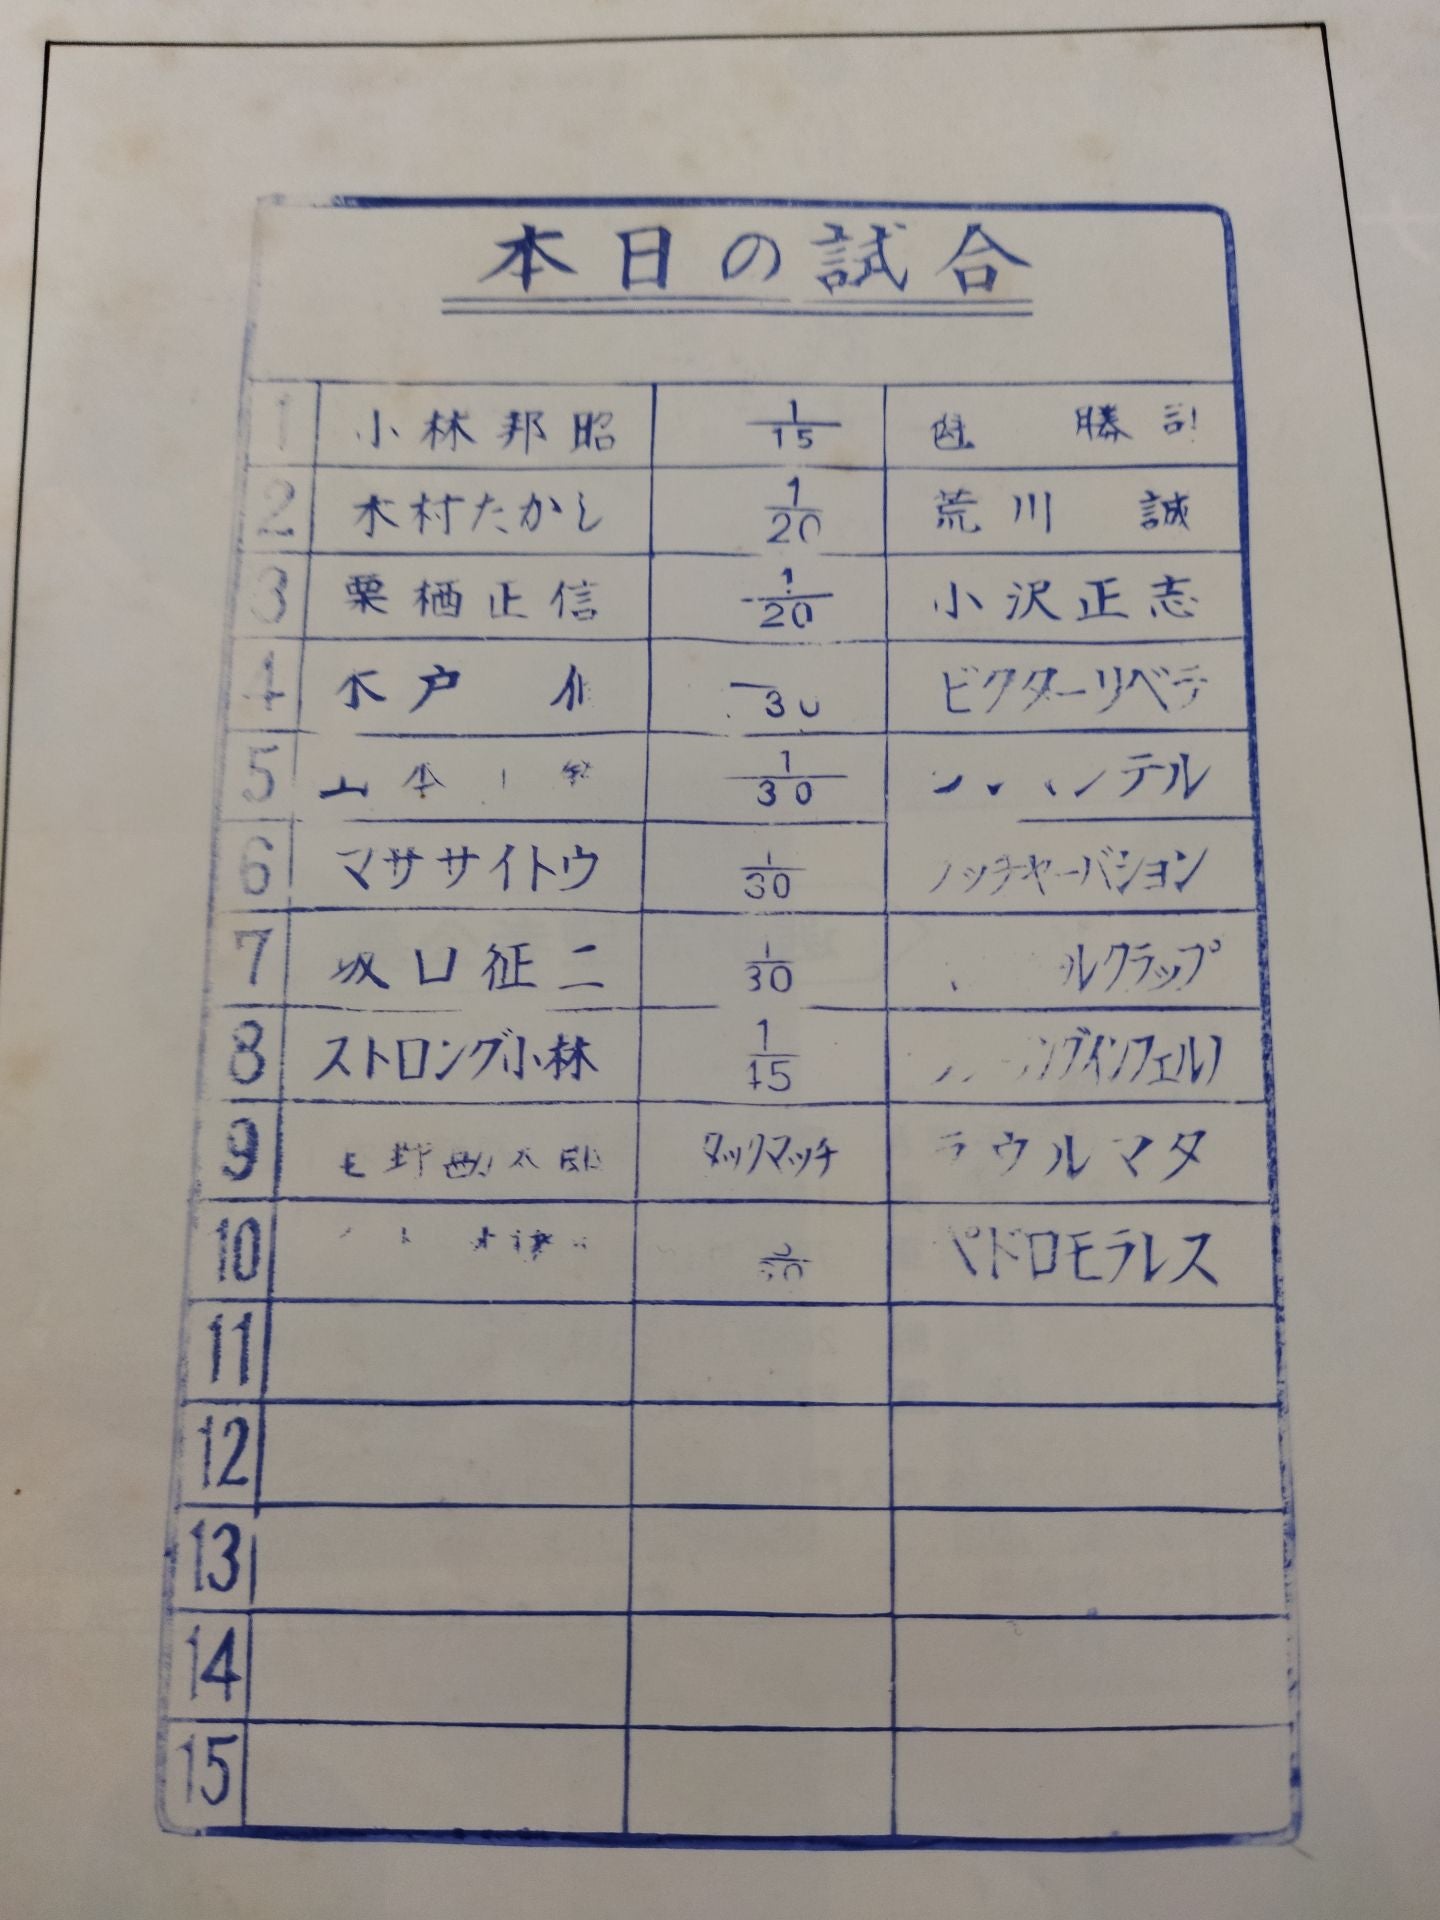 本日の試合
1 小林邦昭 1/15 勝
2 木村たかし 1/20 荒川 誠
3 栗栖正信 1/20 小沢正志
4 木戸 30 ビクターリベラ
5 山本 1/30 テル
6 マササイトウ 1/30 ッチャーバション
7 坂口征二 1/30 ルクラップ
8 ストロング小林 1/45 ングインフェルノ
9 タッグマッチ ラウルマタ
10 ペドロモラレス
11
12
13
14
15